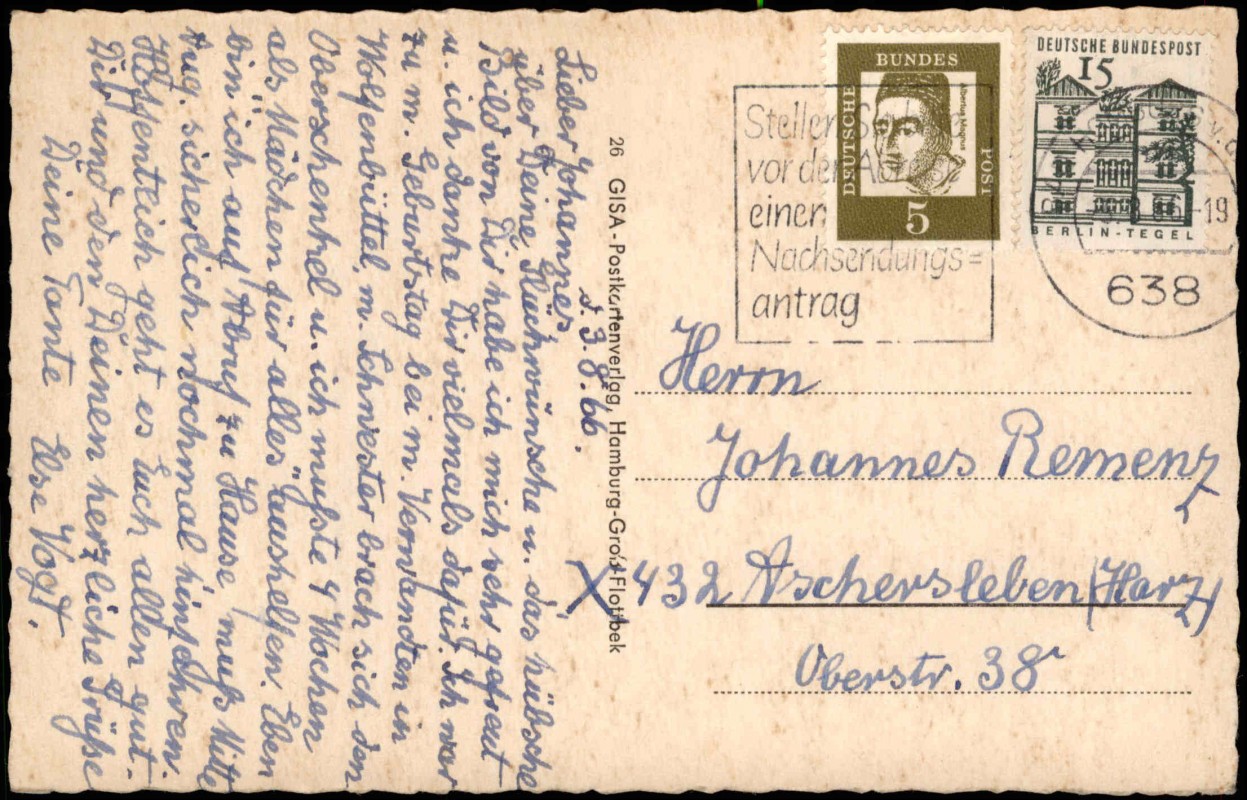 Lieber Johannes,
d. 3.8.66.
über Deine Glückwünsche u. das hübsche
Bild von Dir habe ich mich sehr gefreut
u. ich danke Dir vielmals dafür. Ich war
zu m. Geburtstag bei m. Verwandten in
Wolfenbüttel, m. Schwester brach sich den
Oberschenkel u. ich mußte 4 Wochen
als Mädchen für alles aushelfen. Eben
bin ich auf Abruf zu Hause, muß Mitte
Aug. sicherlich nochmal hinfahren.
Hoffentlich geht es Euch allen gut.
Dir und den Deinen herzliche Grüße
Deine Tante Else Vogt.
26 GISA-Postkartenverlag, Hamburg-Groß-Flottbek
DEUTSCHE BUNDESPOST
5
Albertus Magnus
DEUTSCHE BUNDESPOST
15
BERLIN-TEGEL
Stellen
vor der
einen
Nachsendungs=
antrag
-19
638
Herrn
Johannes Remenz
X 432 Aschersleben (Harz)
Oberstr. 38